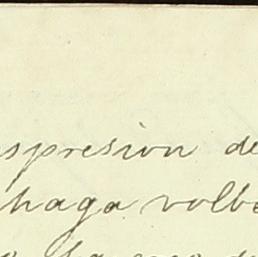 spresion de
haga volbe